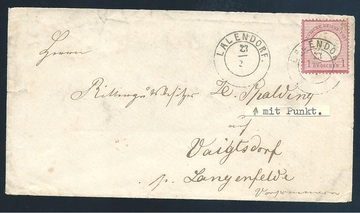 LALENDORF.
23
2
LALENDORF
1 1
Herrn
Rittergutsbesitzer H. Spalding
mit Punkt.
auf
Vaigtsdorf
p. Langenfelde
Vorpommern